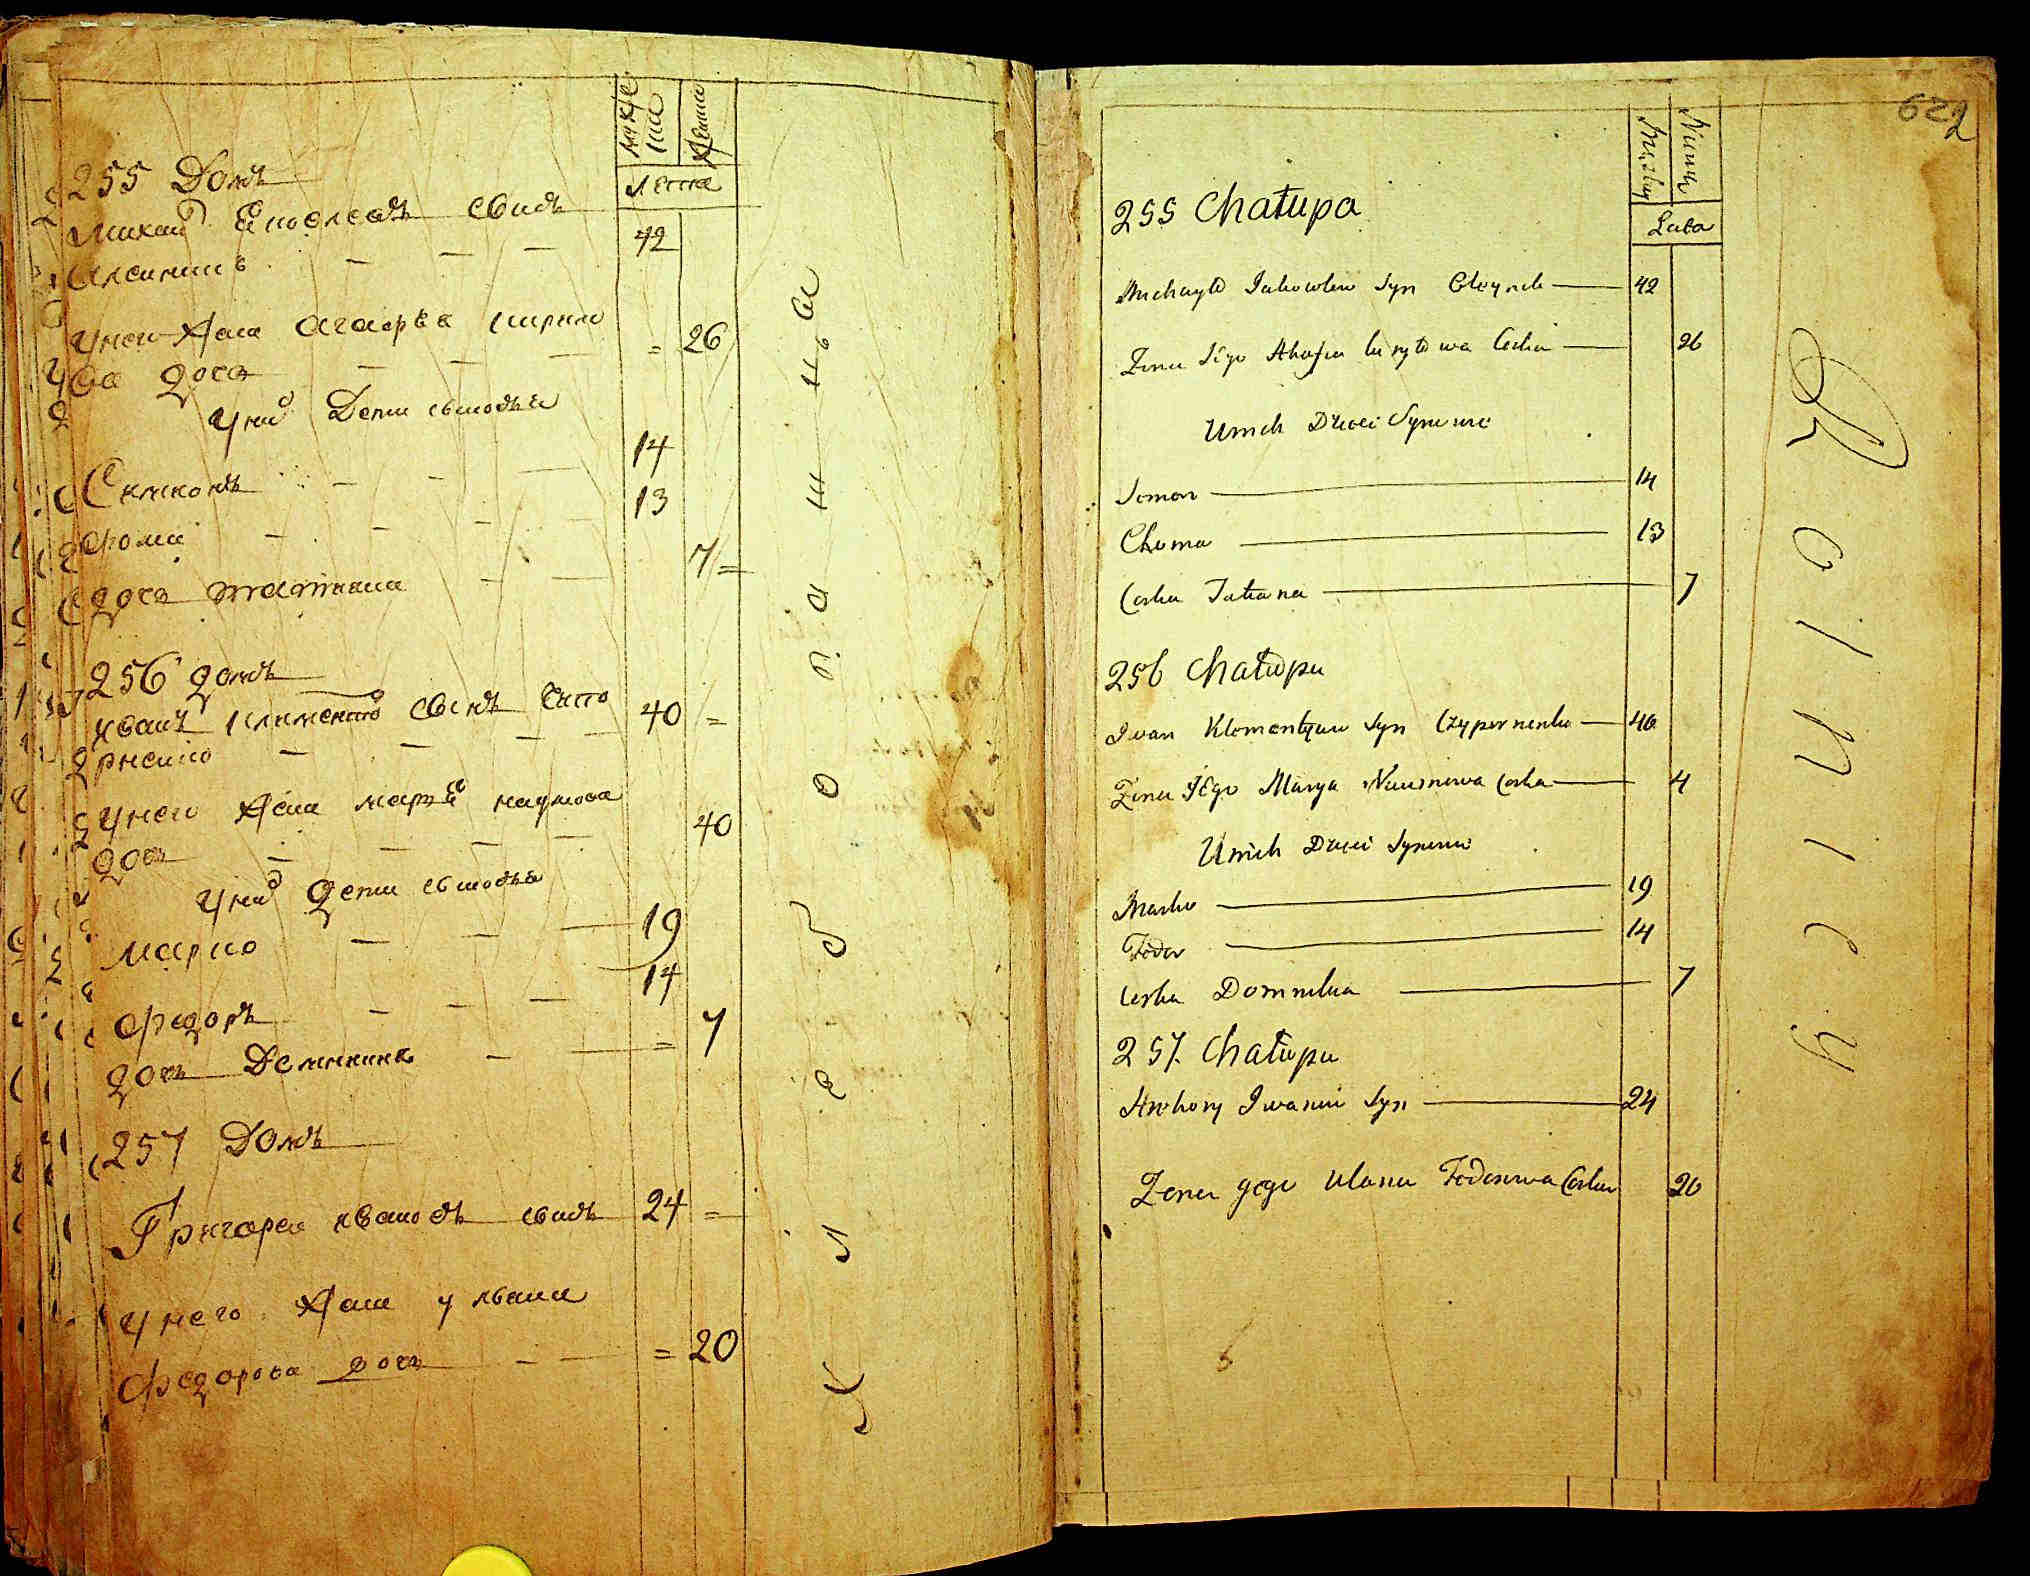 мужеска
женска
лета
255 Домъ
Михаил Яковлевъ сынъ
Олейникъ — — — 42
у него жена Агафья Кирило
ва дочь — — — = 26
у них Дети сыновья
Семионъ — — — 14
Фома — — — 13
дочь татияна — — 7 =
256 домъ
Иванъ Климентов сынъ Чипо
рненко — — — 40 =
у него жена Марья Наумова
дочь — — — 40
у них дети сыновья
Марко — — — 19
Федоръ — — — 14
дочь Доминика — — = 7
257 Домъ
Григорей Ивановъ сынъ 24 =
у него жена ульяна
Федорова дочь — — = 20
Хлебопашны
622
Męzkuy
Niewie
Lata
255 Chałupa
Michayło Jakowlew Syn Oleynik — 42
Żena Jego Ahafia Curyłowa Corka — 26
U nich Dzieci Synowie
Semen — 14
Choma — 13
Corka Tatiana — 7
256 Chałupa
Iwan Klementyuw Syn Czypornenko — 40
Żena Jego Marya Naumowa Corka — 4
U nich Dzieci Synowie
Marko — 19
Fedor — 14
Corka Domnikia — 7
257. Chałupa
Hrehory Iwanow Syn — 24
Żena gego Ulana Fedorowa Corka 20
Rolnicy